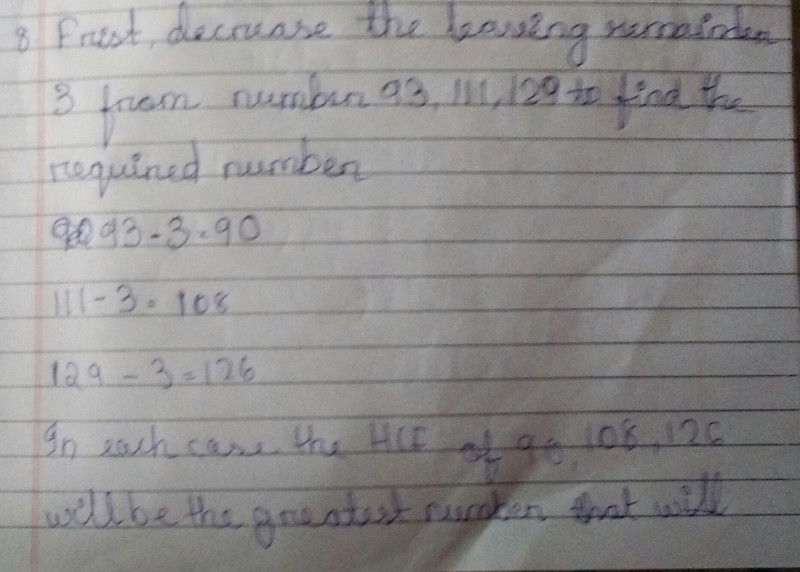 8 Frist, decrease the leaving remainder
3 from number 93, 111, 129 to find the
required number
93-3=90
111-3=108
129-3=126
In each case the HCF of 90, 108, 126
will be the greatest number that will